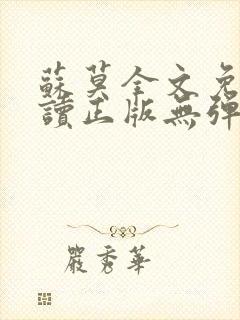 蘇莫全文免
讀正版無彈
嚴秀華